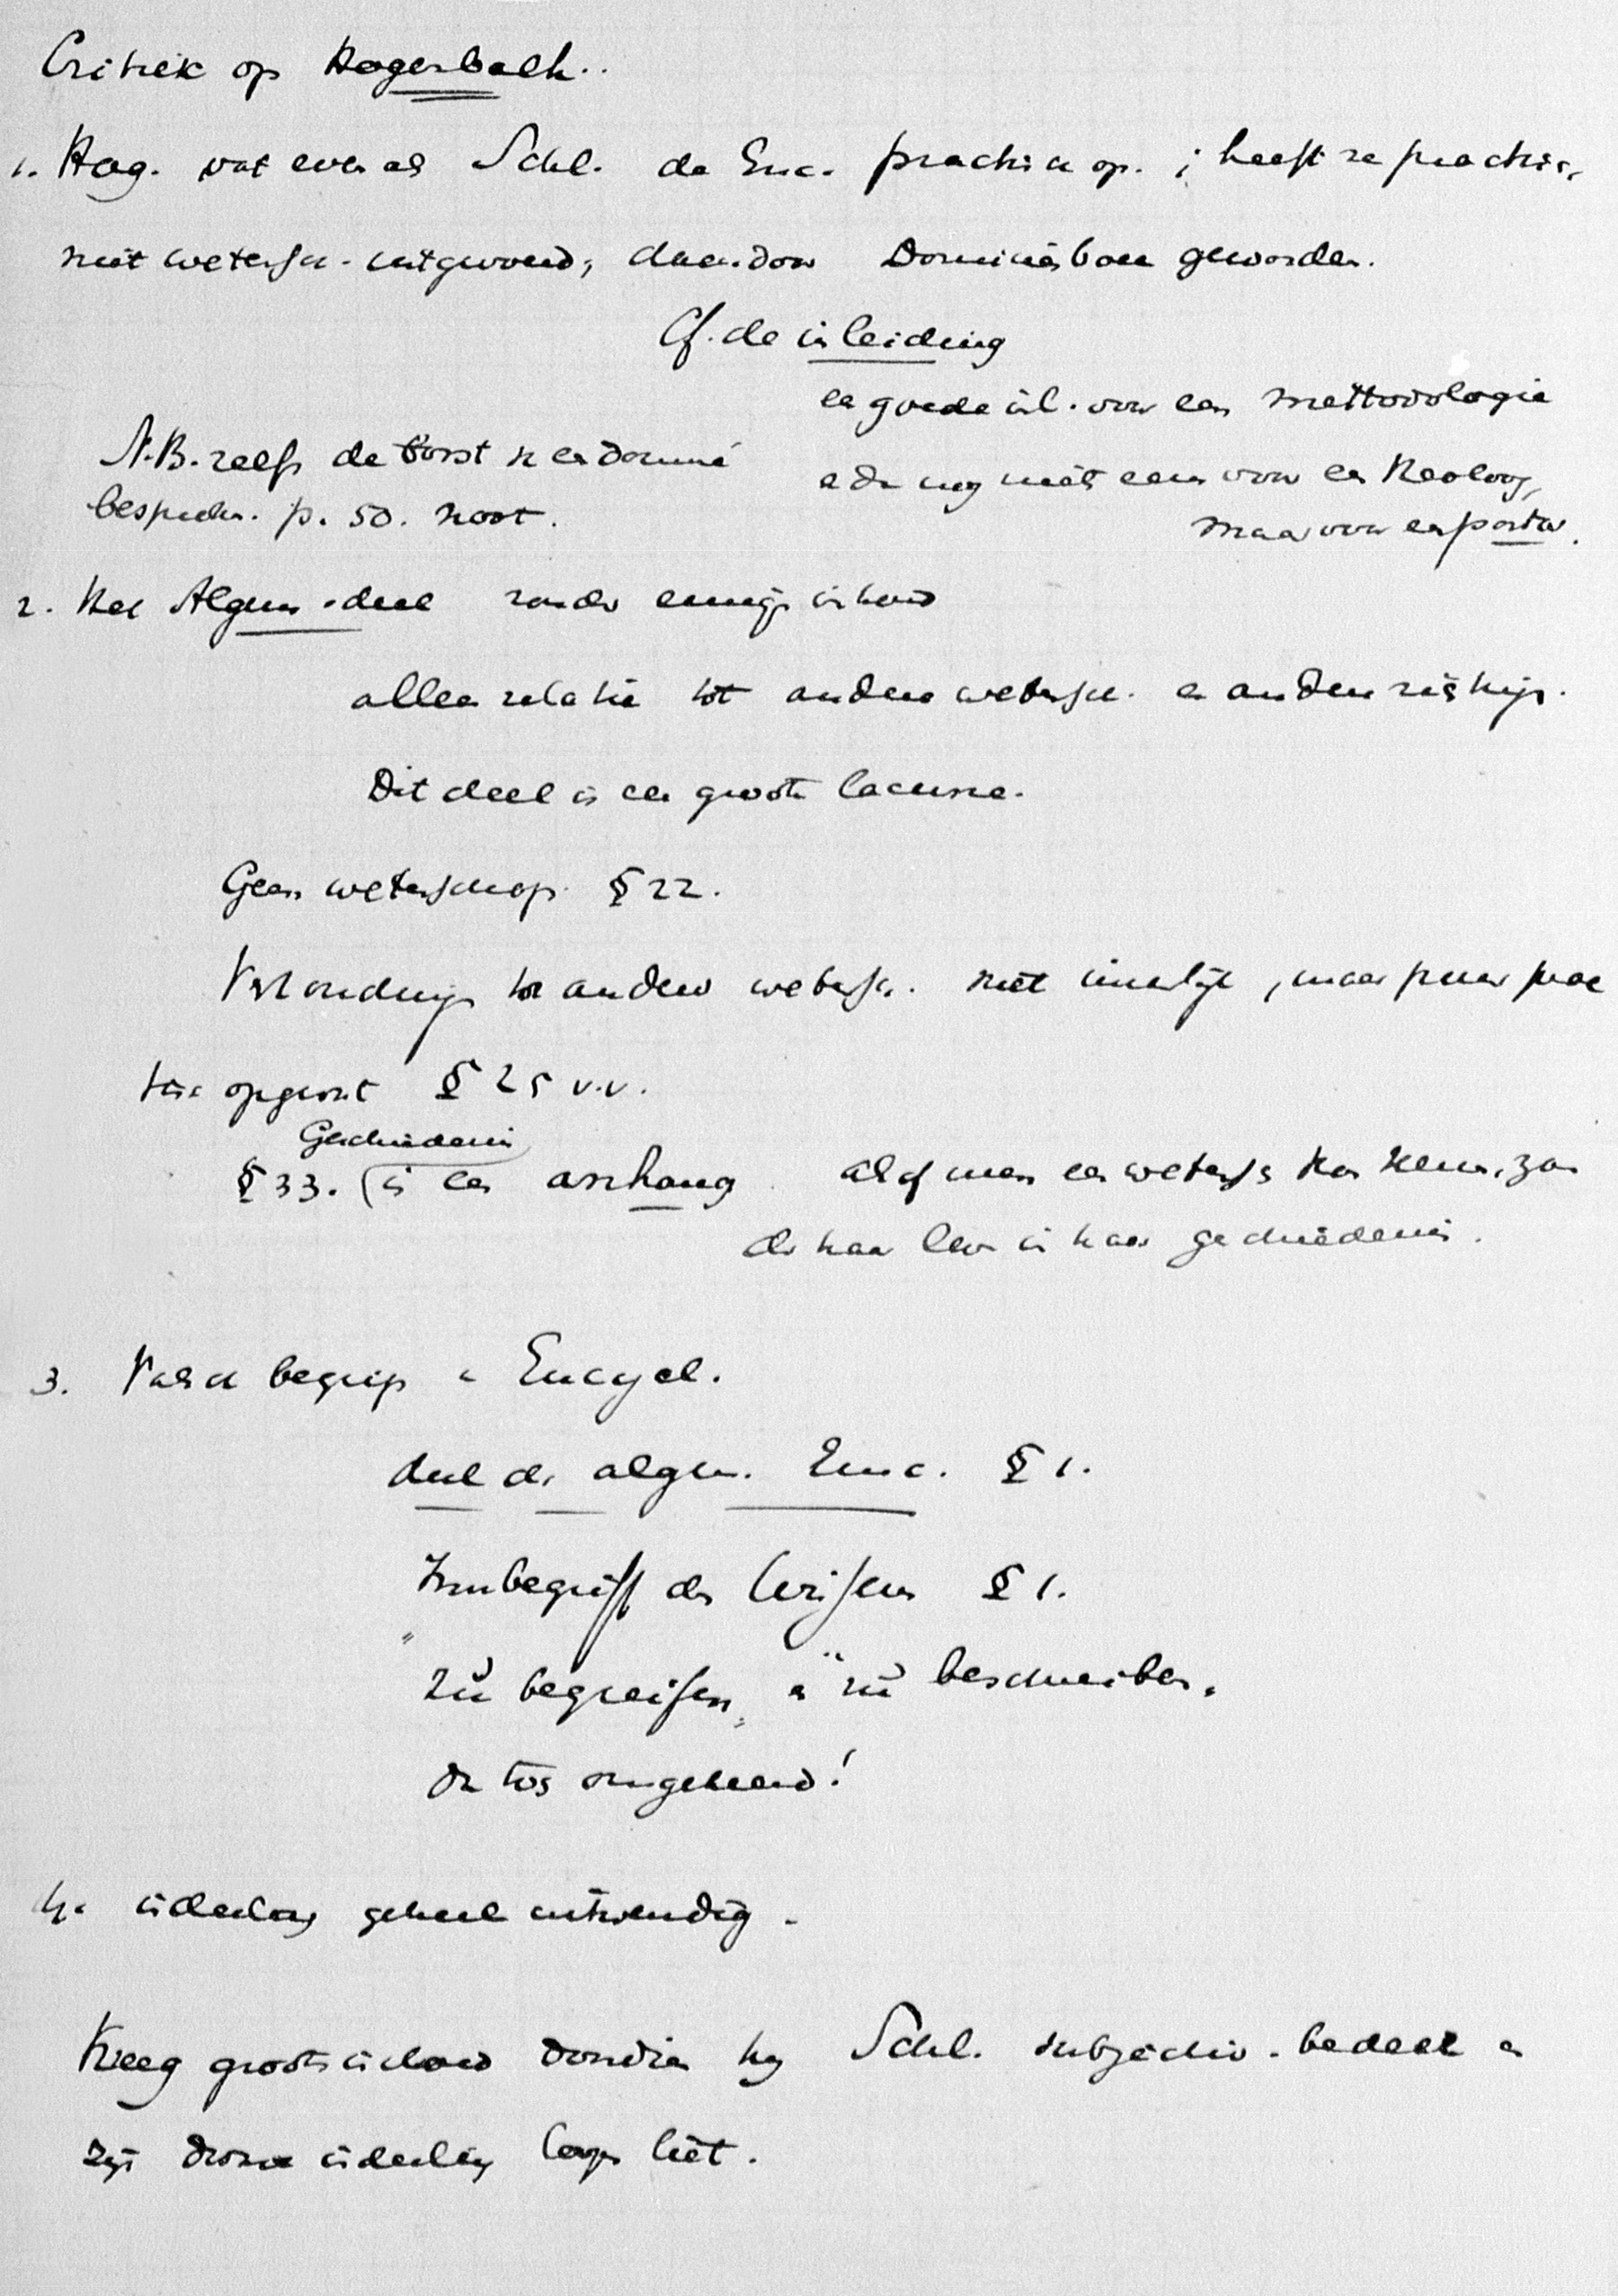 Critiek op Hagenbach.
1. Hag. vat even als Schl. de Enc. practisch op; heeft ze practisc,
niet wetensch. uitgevoerd; daardoor Dominésboek geworden.
Cf. de inleiding
een goede inl. voor een methodologie
N.B. zelfs de borst v. een dominé
en dan nog niet eens voor een theoloog,
bespreken. p. 50. noot.
maar voor een pastor.
2. Het Algem. deel zonder eenige inhoud
alleen relatie tot andere wetensch. en andere
Dit deel is een groote lacune.
Geen wetenschap § 22.
Verhouding tot andere wetensch. niet innerlijk, maar puur prac
tisc opgevat § 25 v.v.
Geschiedenis
§ 33. is een anhang alsof men een wetensch kon kennen, zon
der haar leven in haar geschiedenis.
3. Valsch begrip v Encycl.
deel der algem. Enc. § 1.
Inbegriff des Wissens § 1.
"zu begreifen" en "zu beschreiben.
Dr tös omgekeerd!
4. indeeling geheel uitwendig.
Kreeg groote invloed doordien hij Schl. subjectiv. bedekt en
zijn dwaze indeeling loopen liet.